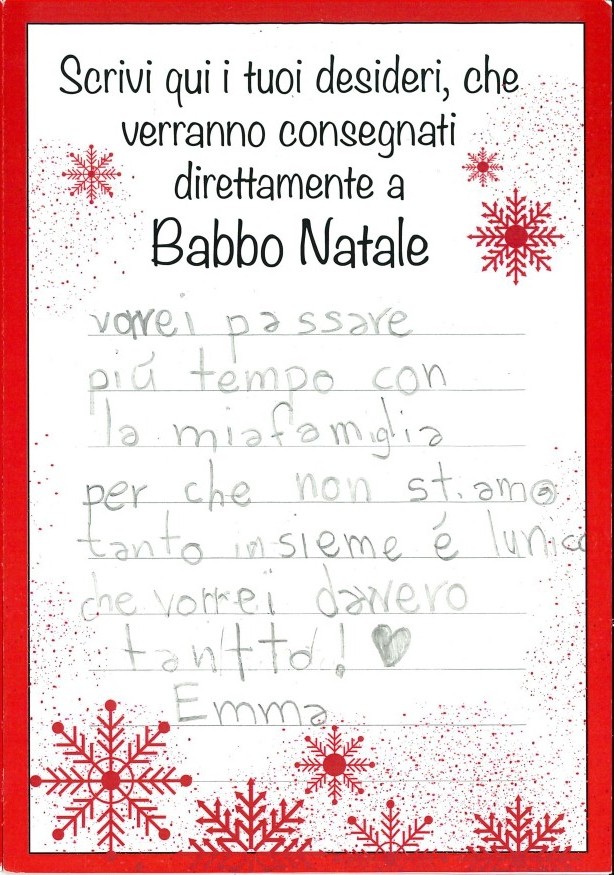 Scrivi qui i tuoi desideri, che
verranno consegnati
direttamente a
Babbo Natale
vorrei passare
piú tempo con
la mia famiglia
per che non stiamo
tanto insieme é lunico
che vorrei davvero
tantto! ♥
Emma